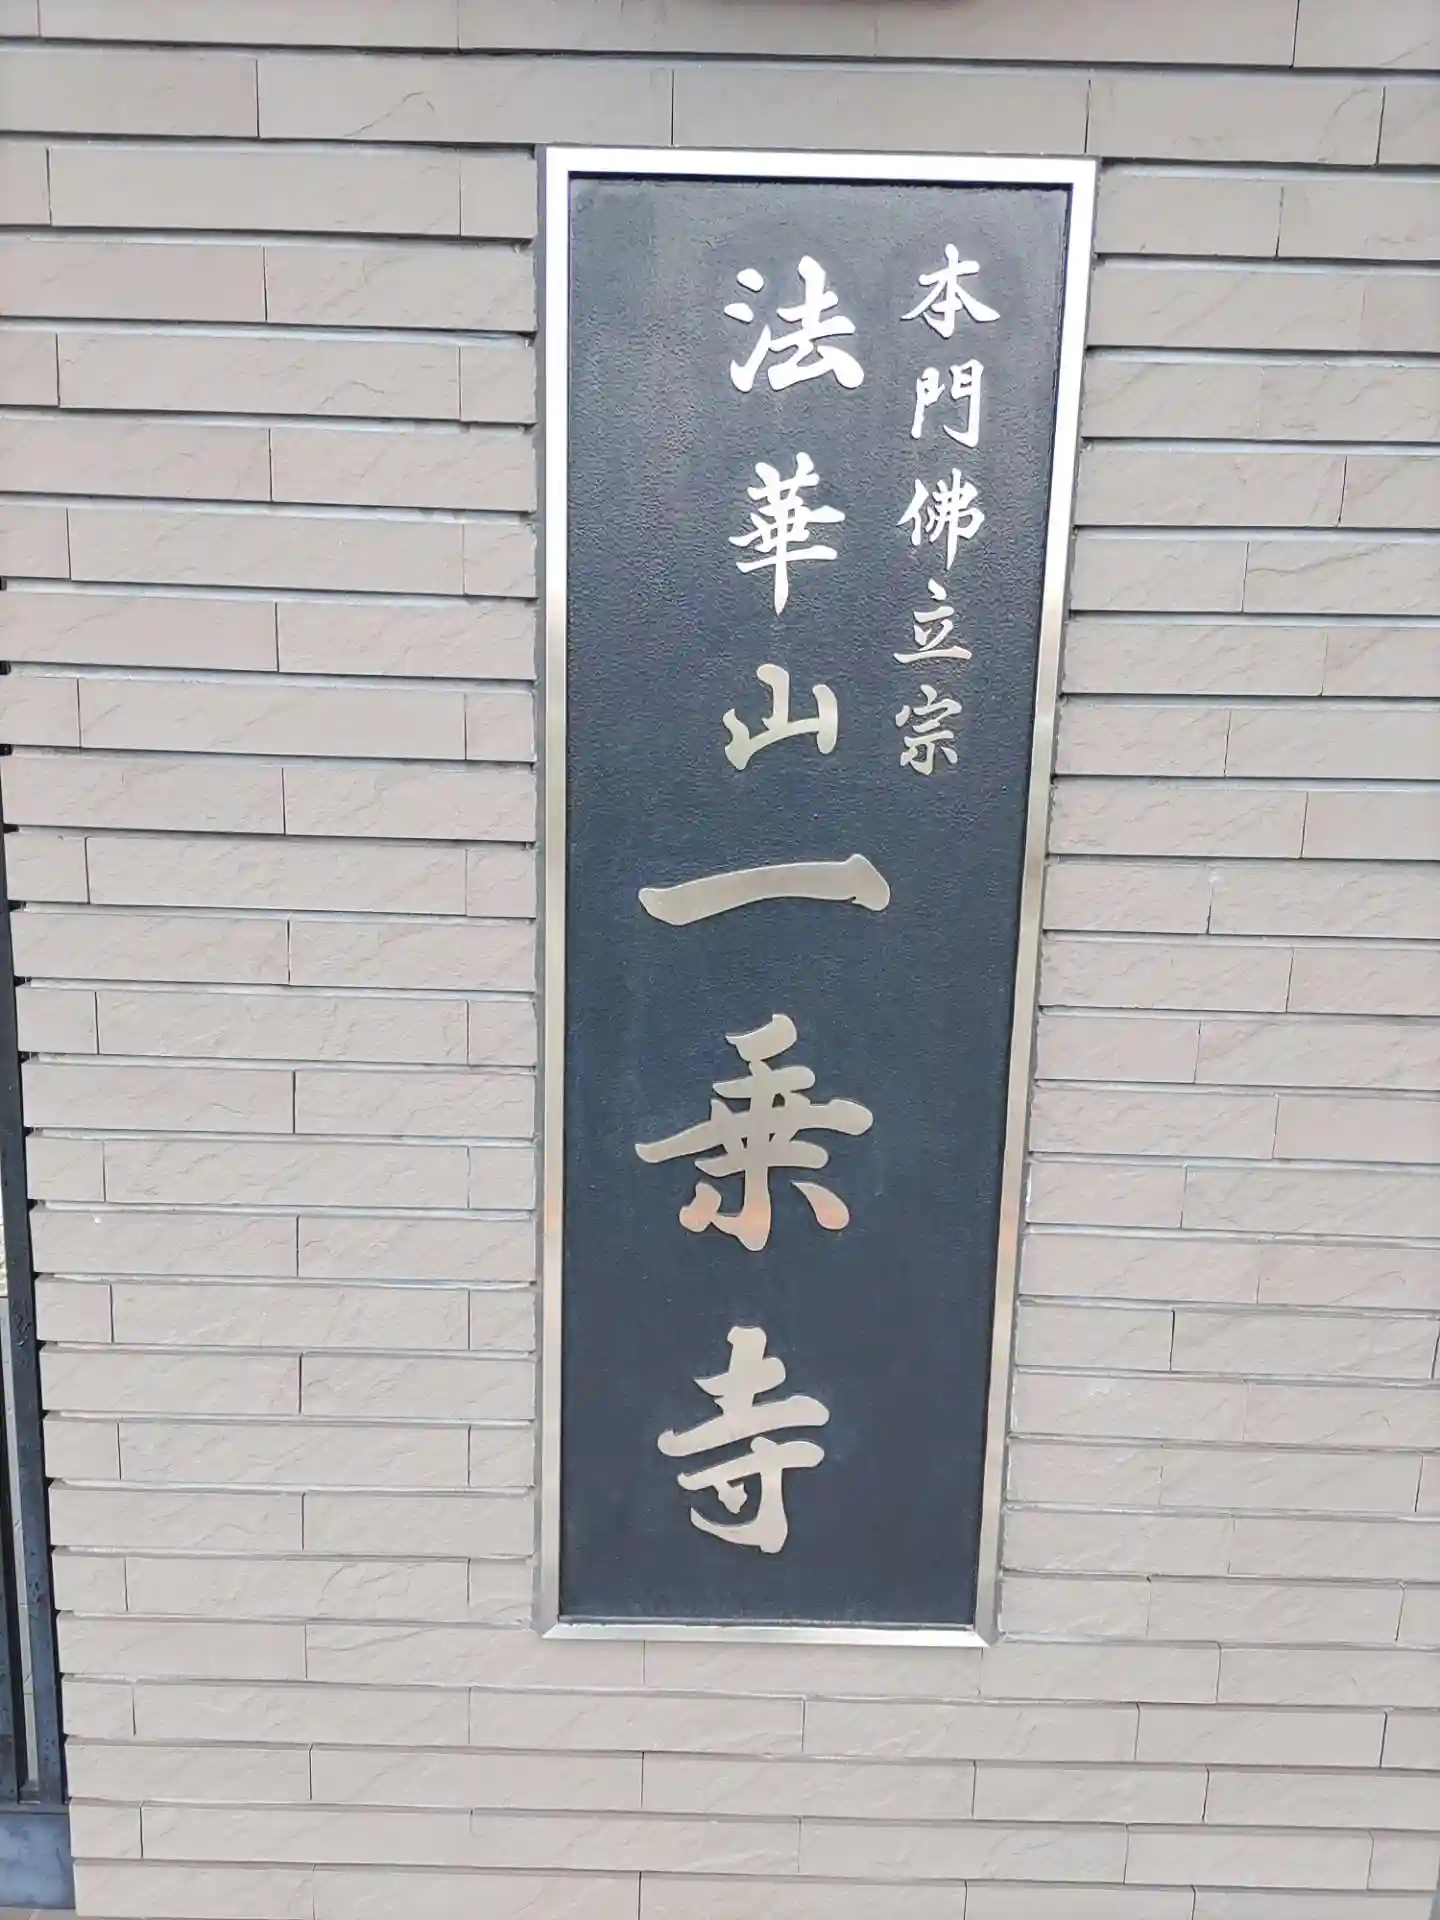 本門佛立宗
法華山一乗寺